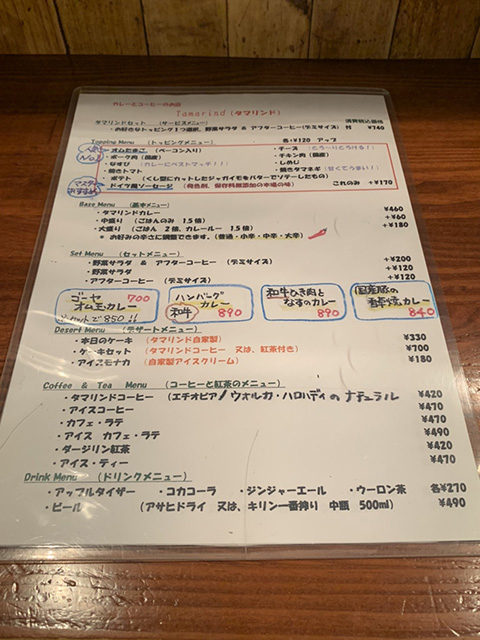 カレーとコーヒーのお店
Tamarind (タマリンド)
タマリンドセット (サービスメニュー) 消費税込価格
・お好きなトッピング1つ選択、野菜サラダ & アフターコーヒー(デミサイズ) 付 ¥740
Topping Menu (トッピングメニュー) 各+¥120 アップ
No.1 ・オムたまご (ベーコン入り) ・チーズ (とろ〜りとろける!)
・ポーク肉 (国産) ・チキン肉 (国産)
・なすび (カレーにベストマッチ!!) ・しめじ
・焼きトマト ・焼きタマネギ (甘くてうまい!)
・ポテト (くし型にカットしたジャガイモをバターでソテーしたもの)
マスターおすすめ ・ドイツ風ソーセージ (発色剤、保存料無添加の本場の味) これのみ +¥170
Base Menu (基本メニュー)
・タマリンドカレー ¥460
・中盛り (ごはんのみ 1.5倍) +¥60
・大盛り (ごはん 2倍、カレールー 1.5倍) +¥180
※ お好みの辛さに調整できます。(普通・小辛・中辛・大辛)
Set Menu (セットメニュー)
・野菜サラダ & アフターコーヒー (デミサイズ) +¥200
・野菜サラダ +¥120
・アフターコーヒー (デミサイズ) +¥120
ゴーヤ 700
オム玉カレー
セットで850!!
ハンバーグ
カレー
和牛 890
和牛ひき肉と
なすのカレー
890
国産豚の
カレー
840
Desert Menu (デザートメニュー)
・本日のケーキ (タマリンド自家製) ¥330
・ケーキセット (タマリンドコーヒー 又は、紅茶付き) ¥700
・アイスモナカ (自家製アイスクリーム) ¥180
Coffee & Tea Menu (コーヒーと紅茶のメニュー)
・タマリンドコーヒー (エチオピア/ウォルカ・ハロハディの ナチュラル ¥420
・アイスコーヒー ¥470
・カフェ・ラテ ¥470
・アイス カフェ・ラテ ¥490
・ダージリン紅茶 ¥420
・アイス・ティー ¥470
Drink Menu (ドリンクメニュー)
・アップルタイザー ・コカコーラ ・ジンジャーエール ・ウーロン茶 各¥270
・ビール (アサヒドライ 又は、キリン一番搾り 中瓶 500ml) ¥490